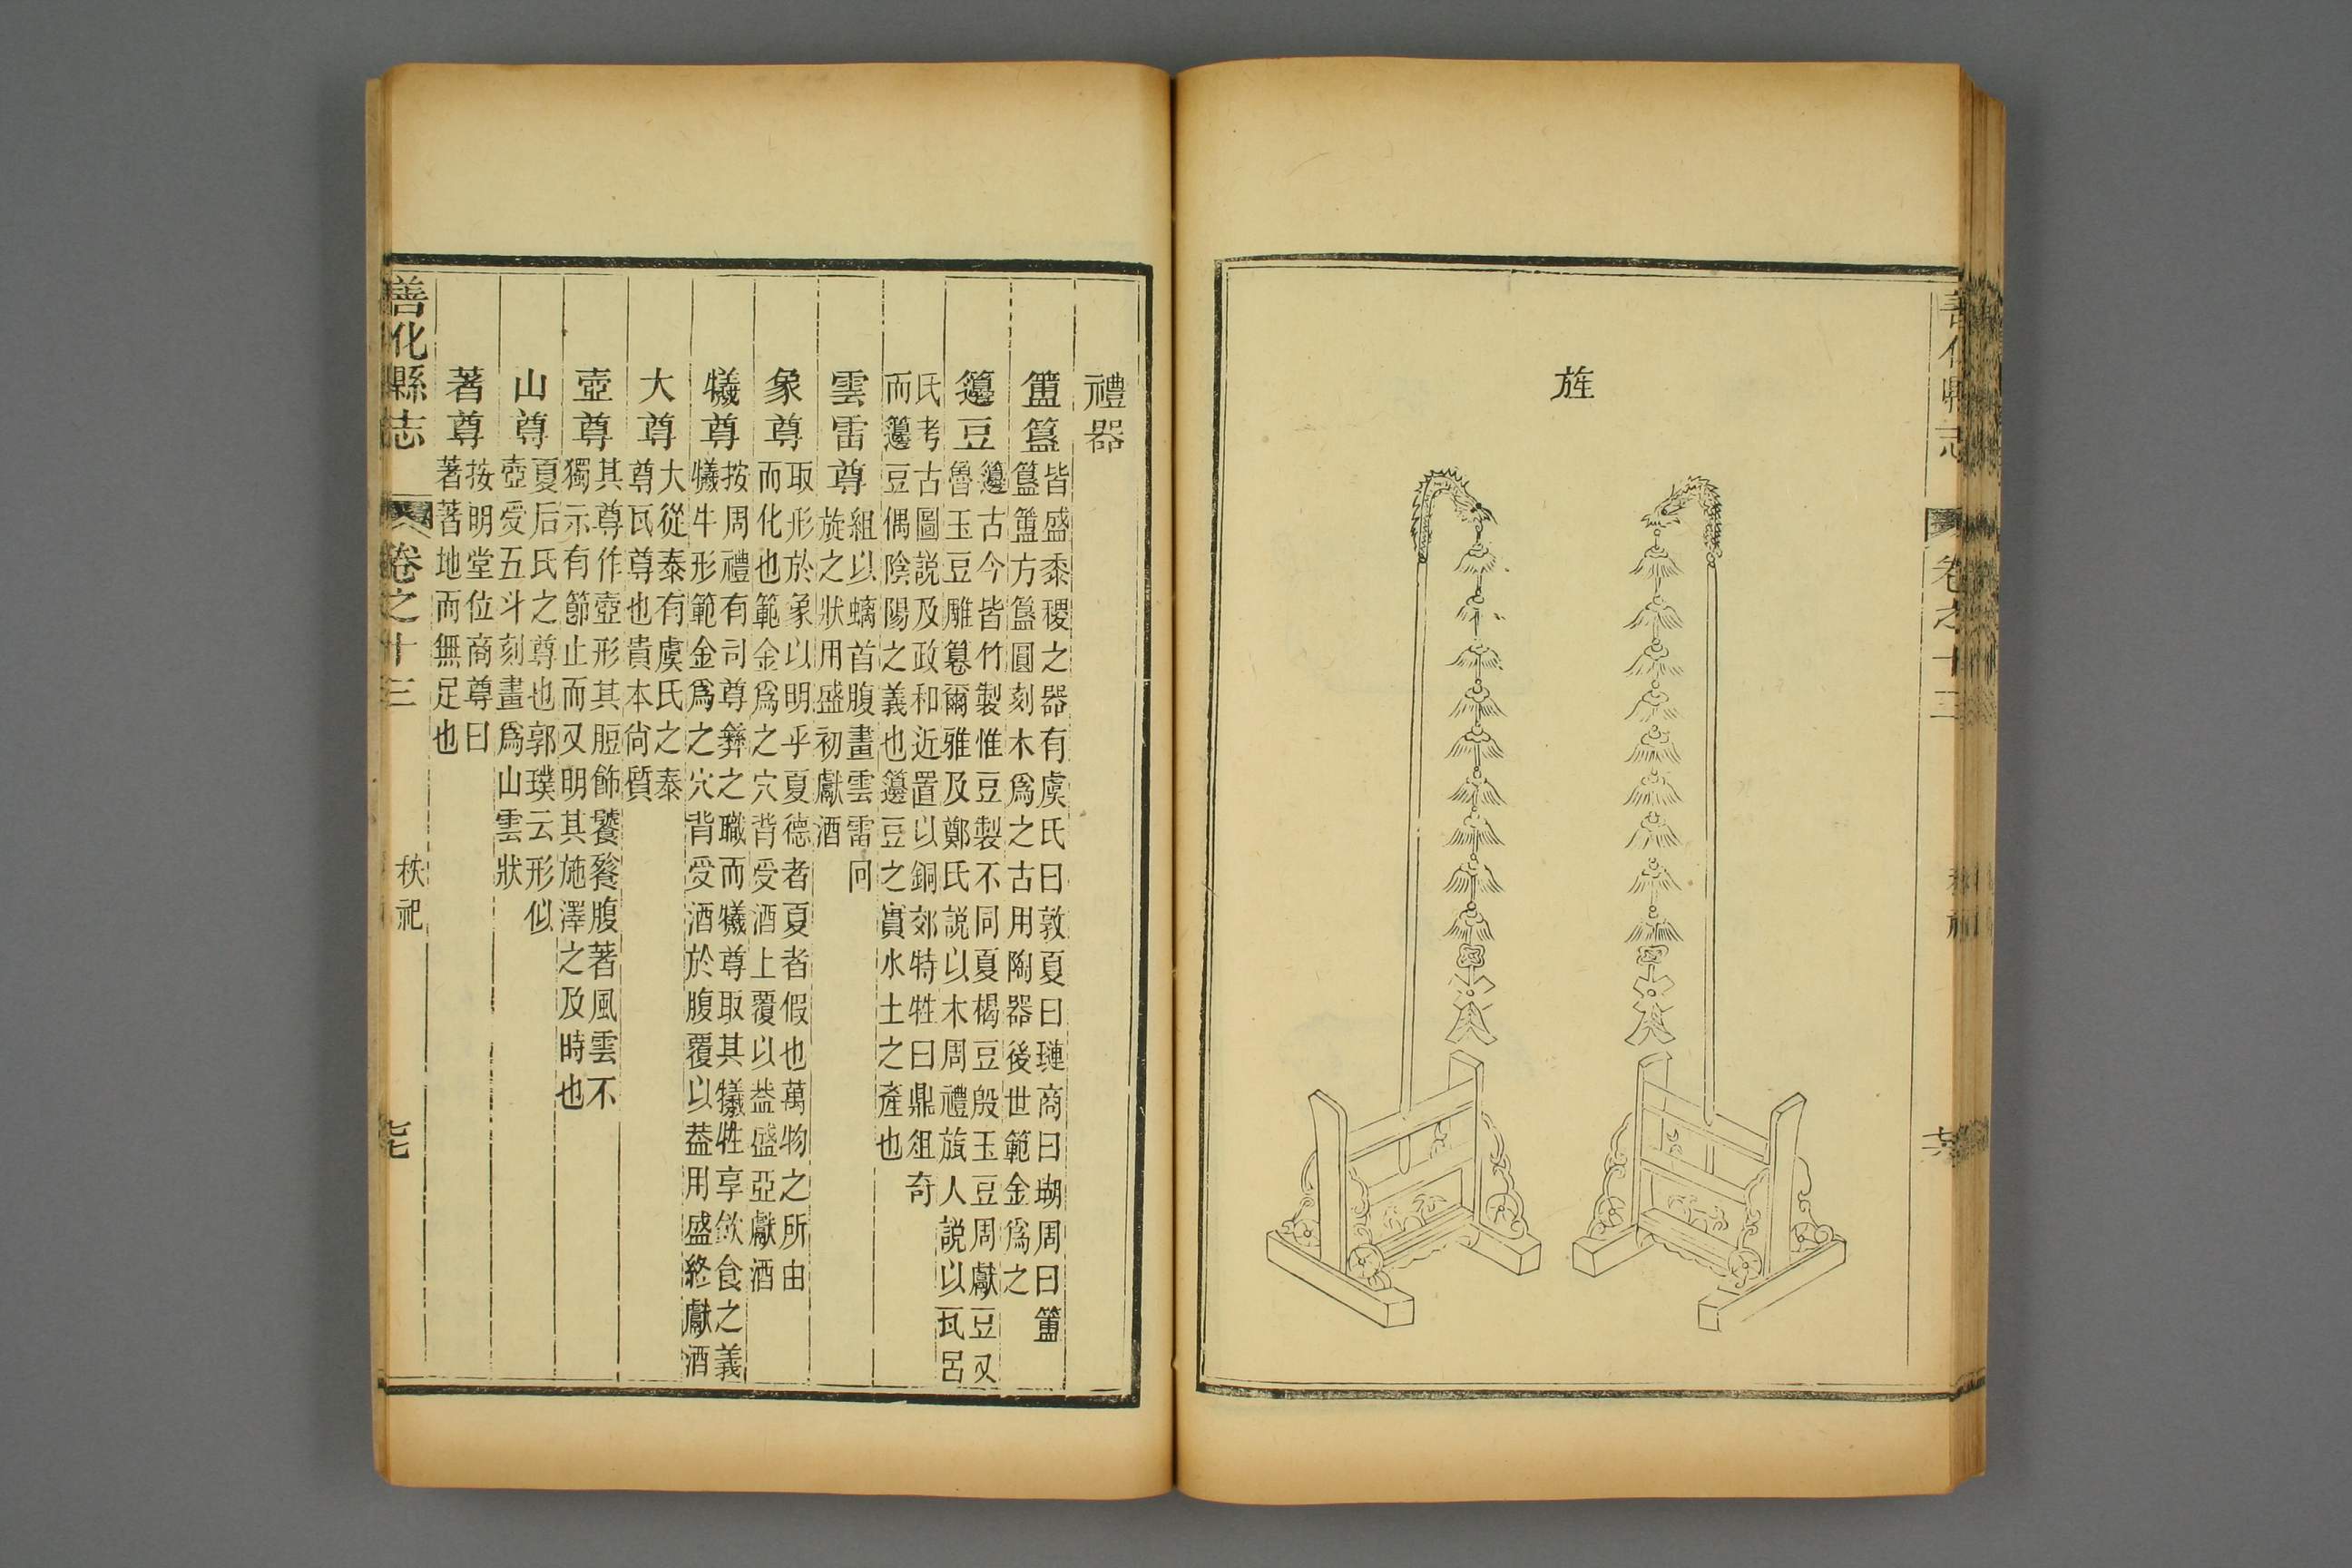 旌
善化縣志
卷之十三
禮器
簠簋
皆盛黍稷之器有虞氏曰敦夏曰璉商曰瑚周曰簠
簋簠方簋圓刻木爲之古用陶器後世範金爲之
籩豆
籩古今皆竹製惟豆製不同夏楬豆殷玉豆周獻豆又
魯玉豆雕篹爾雅及鄭氏説以木周禮旊人説以瓦呂
氏考古圖説及政和近置以銅郊特牲曰鼎俎奇
而籩豆偶陰陽之義也籩豆之實水土之產也
雲雷尊
組以螭首腹畫雲雷囘
旋之狀用盛初獻酒
象尊
取形於象以明乎夏德者夏者假也萬物之所由
而化也範金爲之穴背受酒上覆以葢盛亞獻酒
犧尊
按周禮有司尊彝之職而犧尊取其犧牲享飲食之義
犧牛形範金爲之穴背受酒於腹覆以葢用盛終獻酒
大尊
大從泰有虞氏之泰
尊瓦尊也貴本尙質
壺尊
其尊作壺形其脰飾饕餮腹著風雲不
獨示有節止而又明其施澤之及時也
山尊
夏后氏之尊也郭璞云形似
壺受五斗刻畫爲山雲狀
著尊
按明堂位商尊曰
著著地而無足也
善化縣志
卷之十三
秩祀